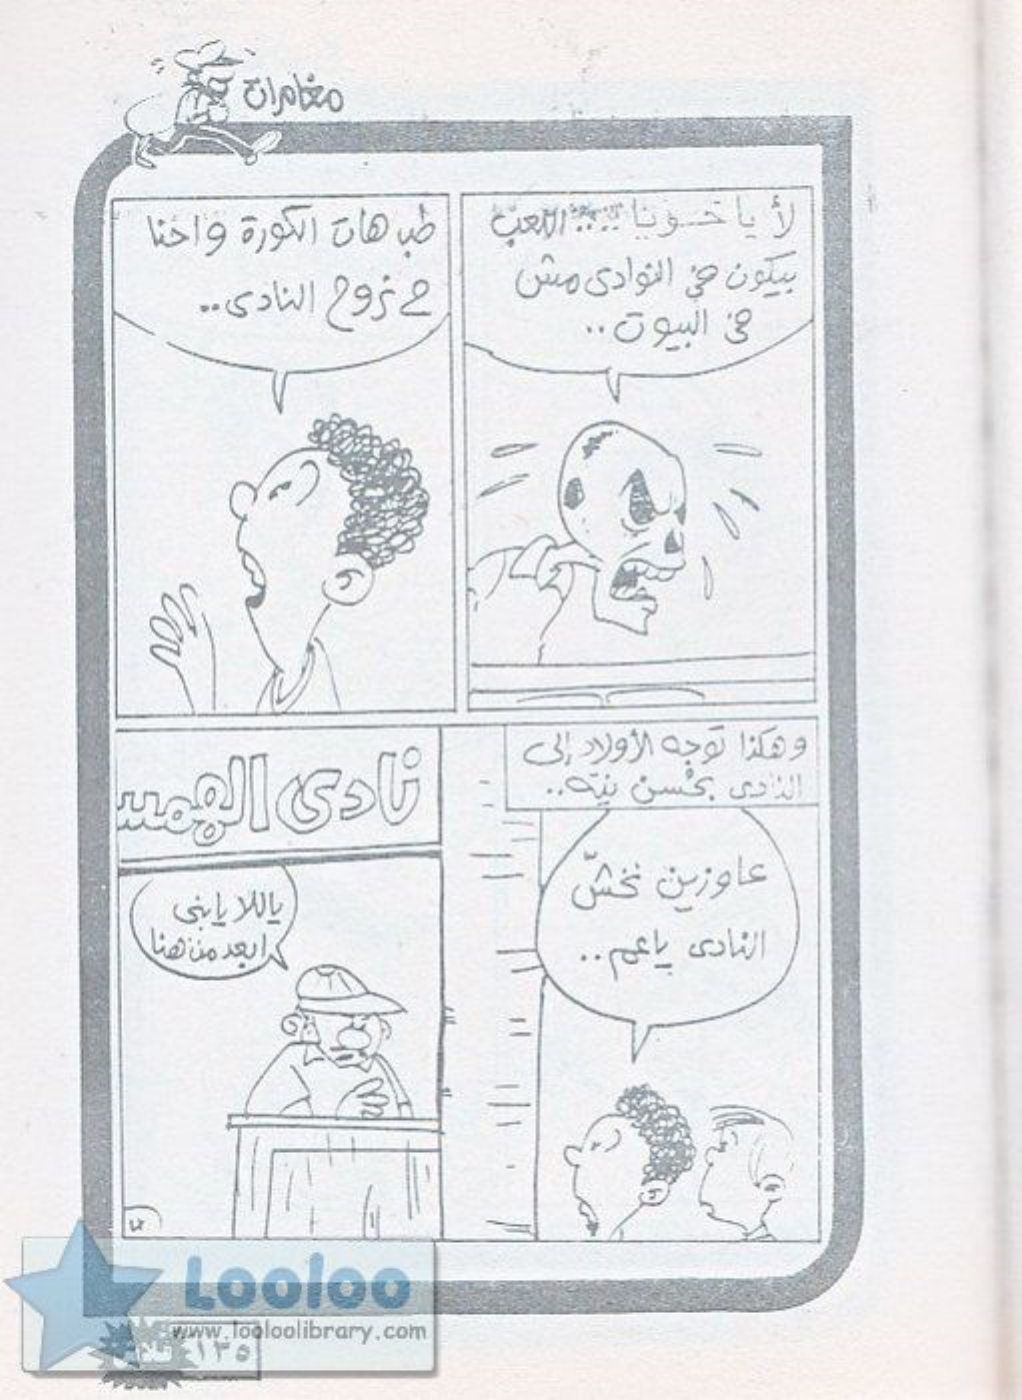 مغامرات
لأ يا خويا .. اللعب
بيكون في النوادى مش
في البيوت ..
طب هات الكورة واحنا
ح نروح النادى ..
وهكذا توجه الأولاد إلى
النادى بحُسن نيّه ..
عاوزين نخشّ
النادى ياعم ..
نادى الهمس
ياللا يابنى
ابعد من هنا
Looloo
www.looloolibrary.com
١٣٥